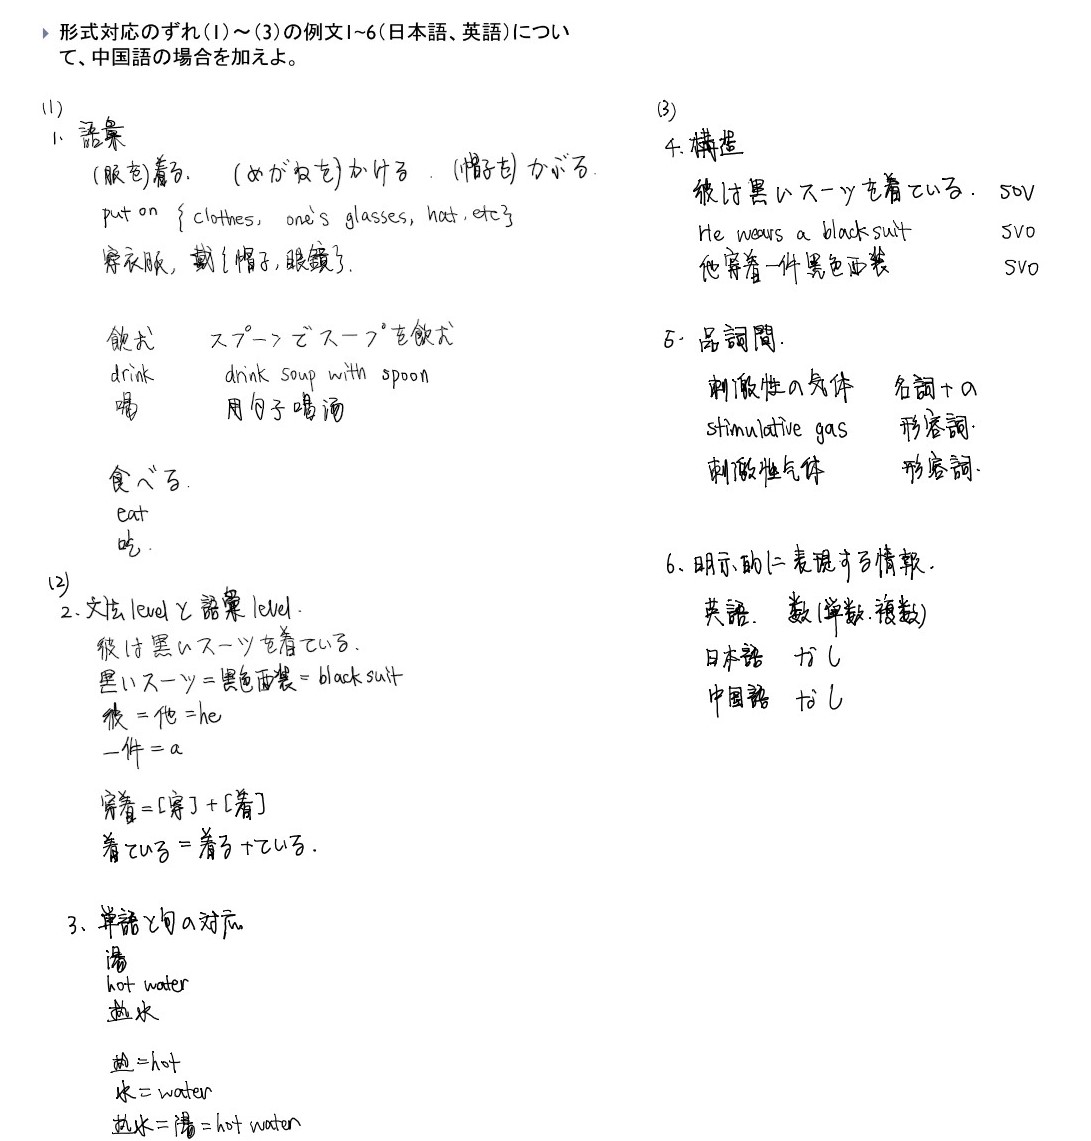 形式対応のずれ(1)～(3)の例文1~6(日本語、英語)につい
て、中国語の場合を加えよ。
(1)
1. 語彙
(服を)着る. (めがねを)かける. (帽子を)かぶる.
put on {clothes, one's glasses, hat, etc}
穿衣服, 戴{帽子, 眼鏡}.
飲む スプーンでスープを飲む
drink drink soup with spoon
喝 用勺子喝汤
食べる.
eat
吃.
(2)
2. 文法levelと語彙level.
彼は黒いスーツを着ている.
黒いスーツ=黑色西装=black suit
彼=他=he
一件=a
穿着=[穿]+[着]
着ている=着る+ている.
3、単語と句の対応
湯
hot water
热水
热=hot
水=water
热水=湯=hot water
(3)
4. 構造
彼は黒いスーツを着ている. SOV
He wears a black suit SVO
他穿着一件黑色西装 SVO
5. 品詞間.
刺激性の気体 名詞+の
stimulative gas 形容詞.
刺激性气体 形容詞.
6、明示的に表現する情報.
英語. 数(単数.複数)
日本語 なし
中国語 なし